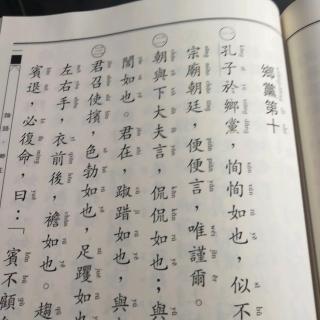 鄉黨第十
㊀孔子於鄉黨，恂恂如也，似不
宗廟朝廷，便便言，唯謹爾。
㊁朝與下大夫言，侃侃如也；與
誾如也。君在，踧踖如也，與
㊂君召使擯，色勃如也，足躩如也
左右手，衣前後，襜如也。趨
賓退，必復命，曰：「賓不顧